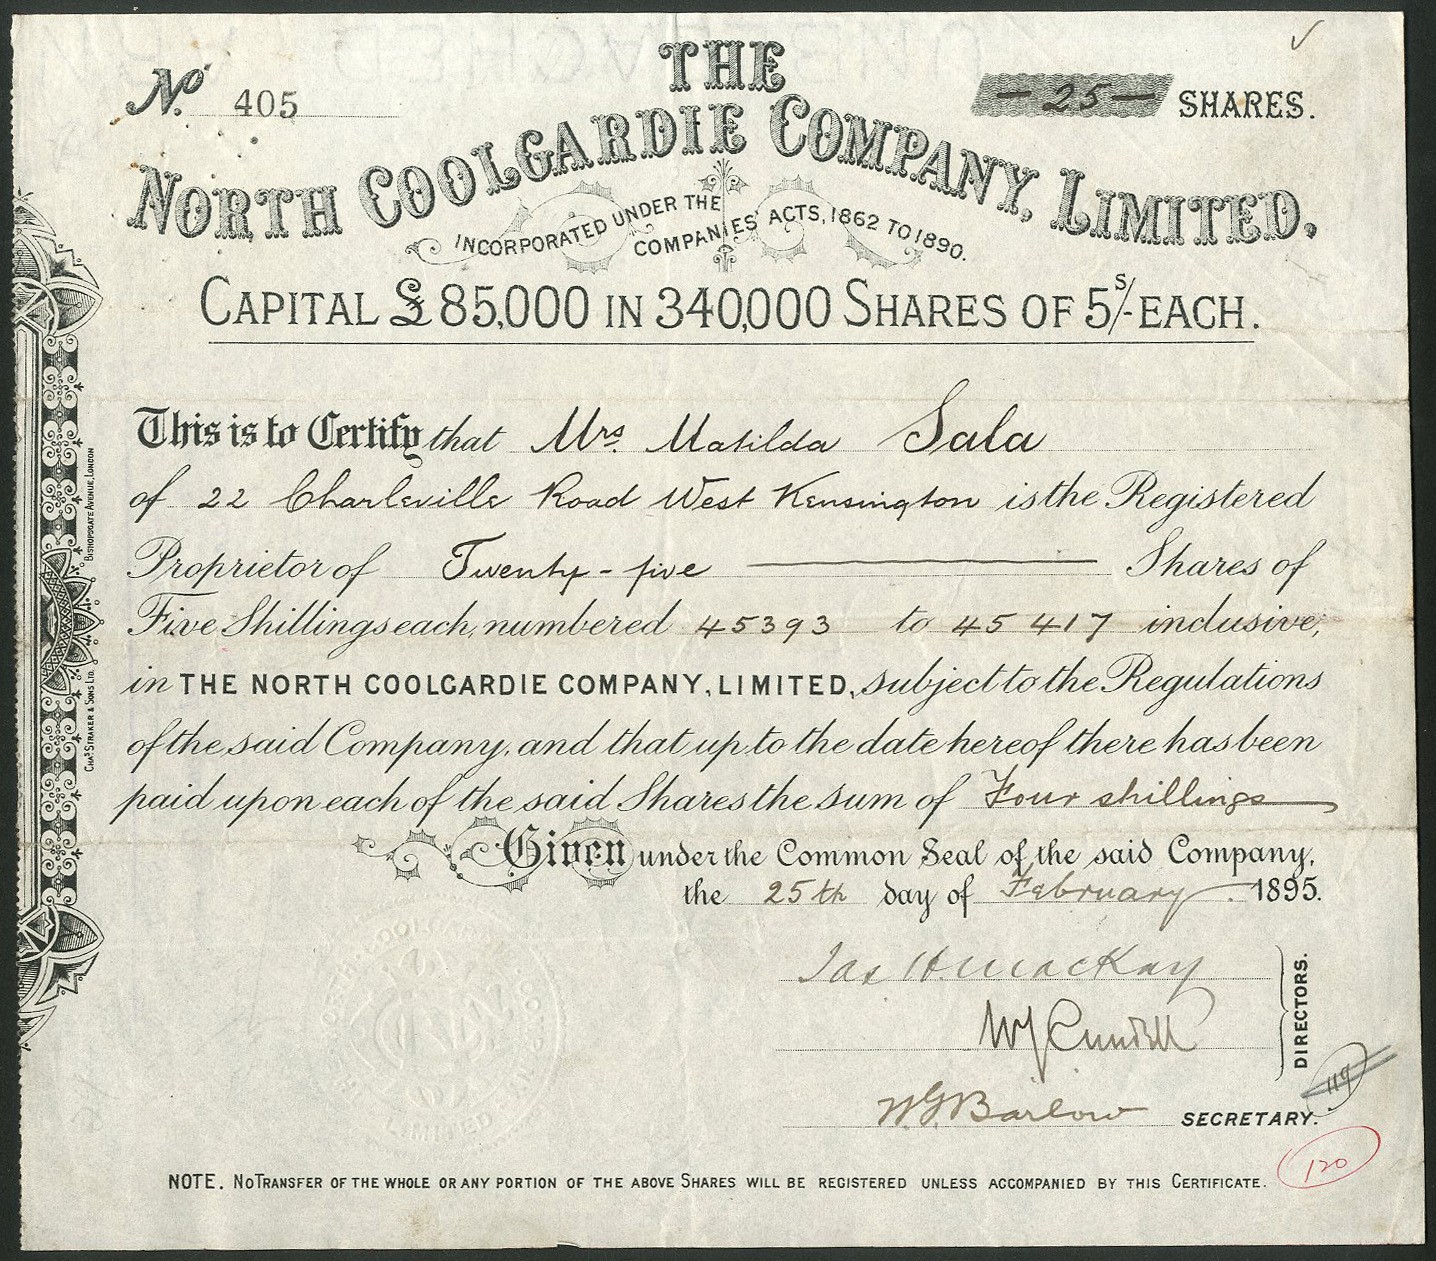 No. 405
— 25 — SHARES.
THE
NORTH COOLGARDIE COMPANY, LIMITED.
INCORPORATED UNDER THE
COMPANIES' ACTS, 1862 TO 1890.
CAPITAL £85,000 IN 340,000 SHARES OF 5S/- EACH.
This is to Certify that Mrs. Matilda Sala
of 22 Charleville Road West Kensington is the Registered
Proprietor of Twenty-five Shares of
Five Shillings each, numbered 45393 to 45417 inclusive,
in THE NORTH COOLGARDIE COMPANY, LIMITED, subject to the Regulations
of the said Company, and that up to the date hereof there has been
paid upon each of the said Shares the sum of Four shillings
Given under the Common Seal of the said Company,
the 25th day of February 1895.
Jas H Mackay
DIRECTORS.
W. G. Barlow SECRETARY.
119
120
NOTE. NO TRANSFER OF THE WHOLE OR ANY PORTION OF THE ABOVE SHARES WILL BE REGISTERED UNLESS ACCOMPANIED BY THIS CERTIFICATE.
CHAS. STRAKER & SONS LTD. BISHOPSGATE AVENUE, LONDON